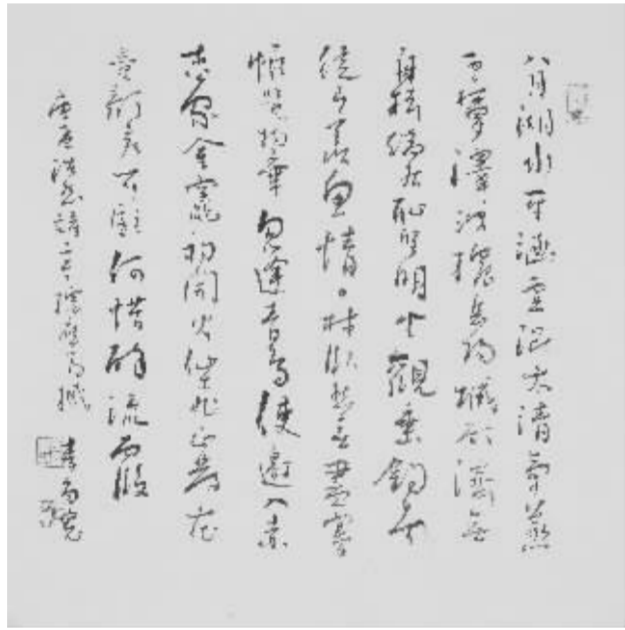 八月湖水平涵虚混太清氣蒸
雲夢澤波撼岳陽城欲濟無
舟楫端居耻聖明坐觀垂釣者
徒有羡魚情。林臥愁春盡搴
帷覽物華忽逢青鳥使邀入赤
松家金竈初開火仙桃正發花
童顏若可駐何惜醉流霞
唐孟浩然詩二章